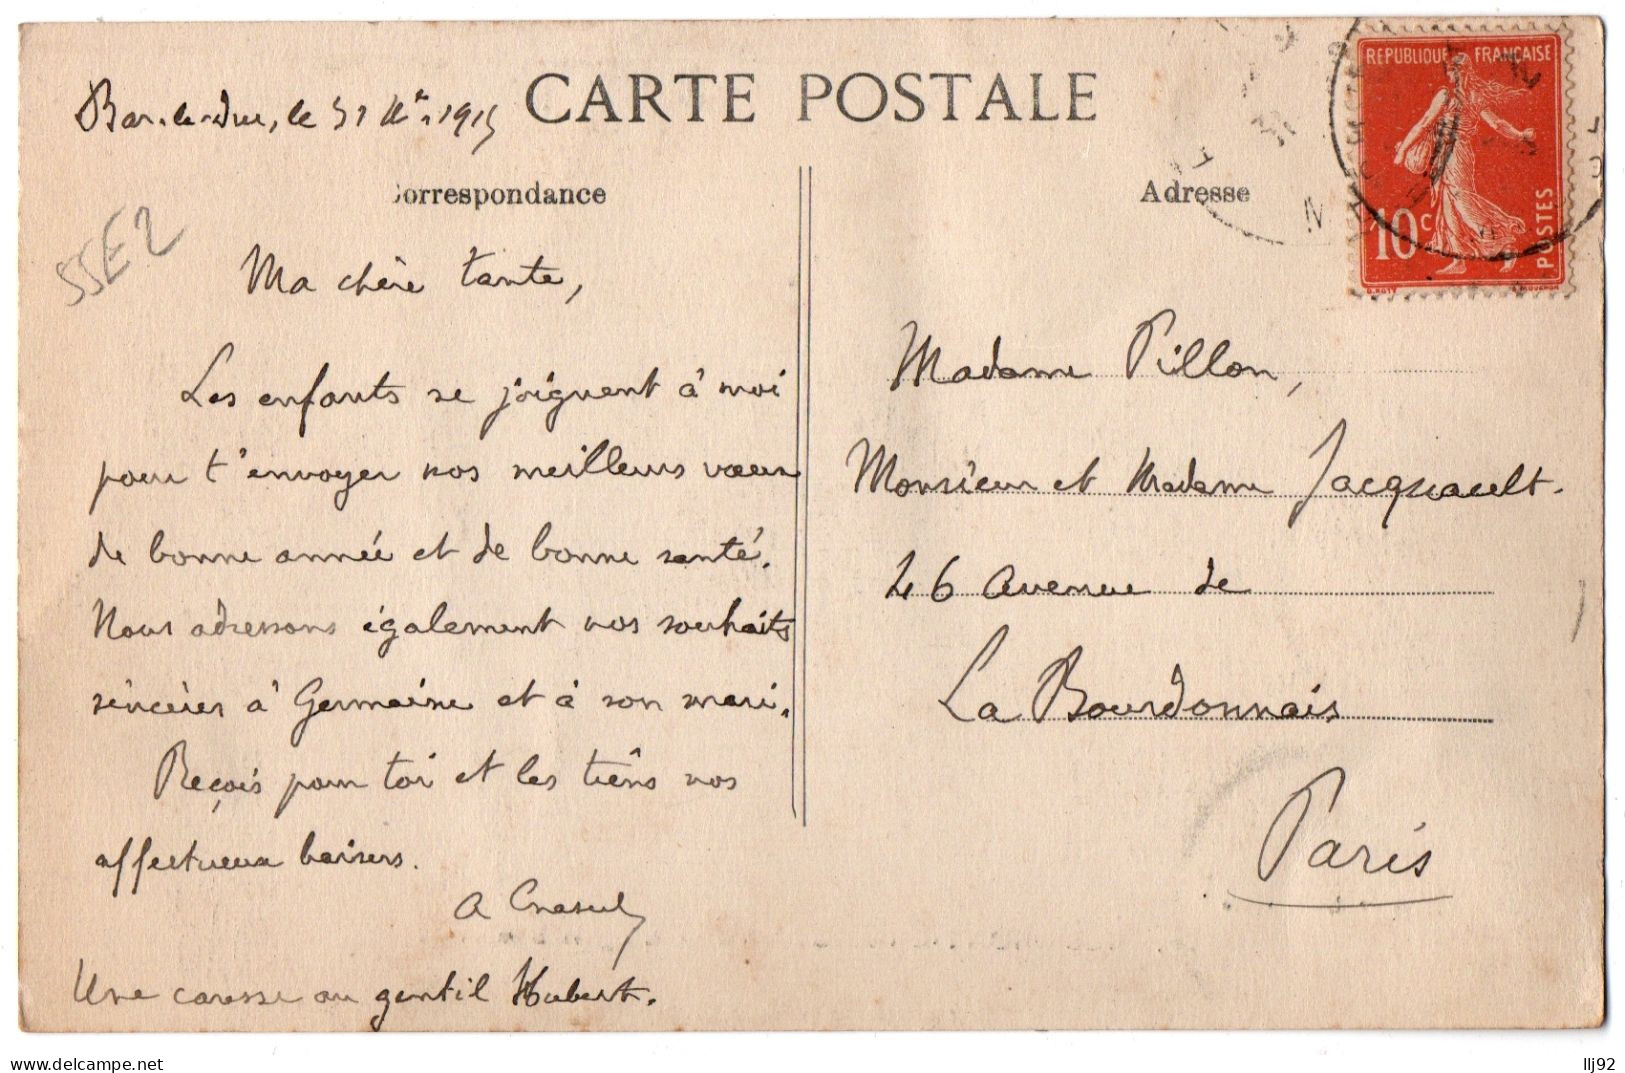 CARTE POSTALE
Bar-le-Duc, le 31 Xbre 1915
Correspondance
SSE2
Ma chère tante,
Les enfants se joignent à moi
pour t'envoyer nos meilleurs vœux
de bonne année et de bonne santé.
Nous adressons également nos souhaits
sincères à Germaine et à son mari.
Reçois pour toi et les tiens nos
affectueux baisers.
A
Une caresse au gentil Hubert.
Adresse
REPUBLIQUE FRANÇAISE
10 c
POSTES
O. ROTY
Madame Pillon,
Monsieur et Madame Jacquault.
46 Avenue de
La Bourdonnais
Paris
delcampe.net
llj92